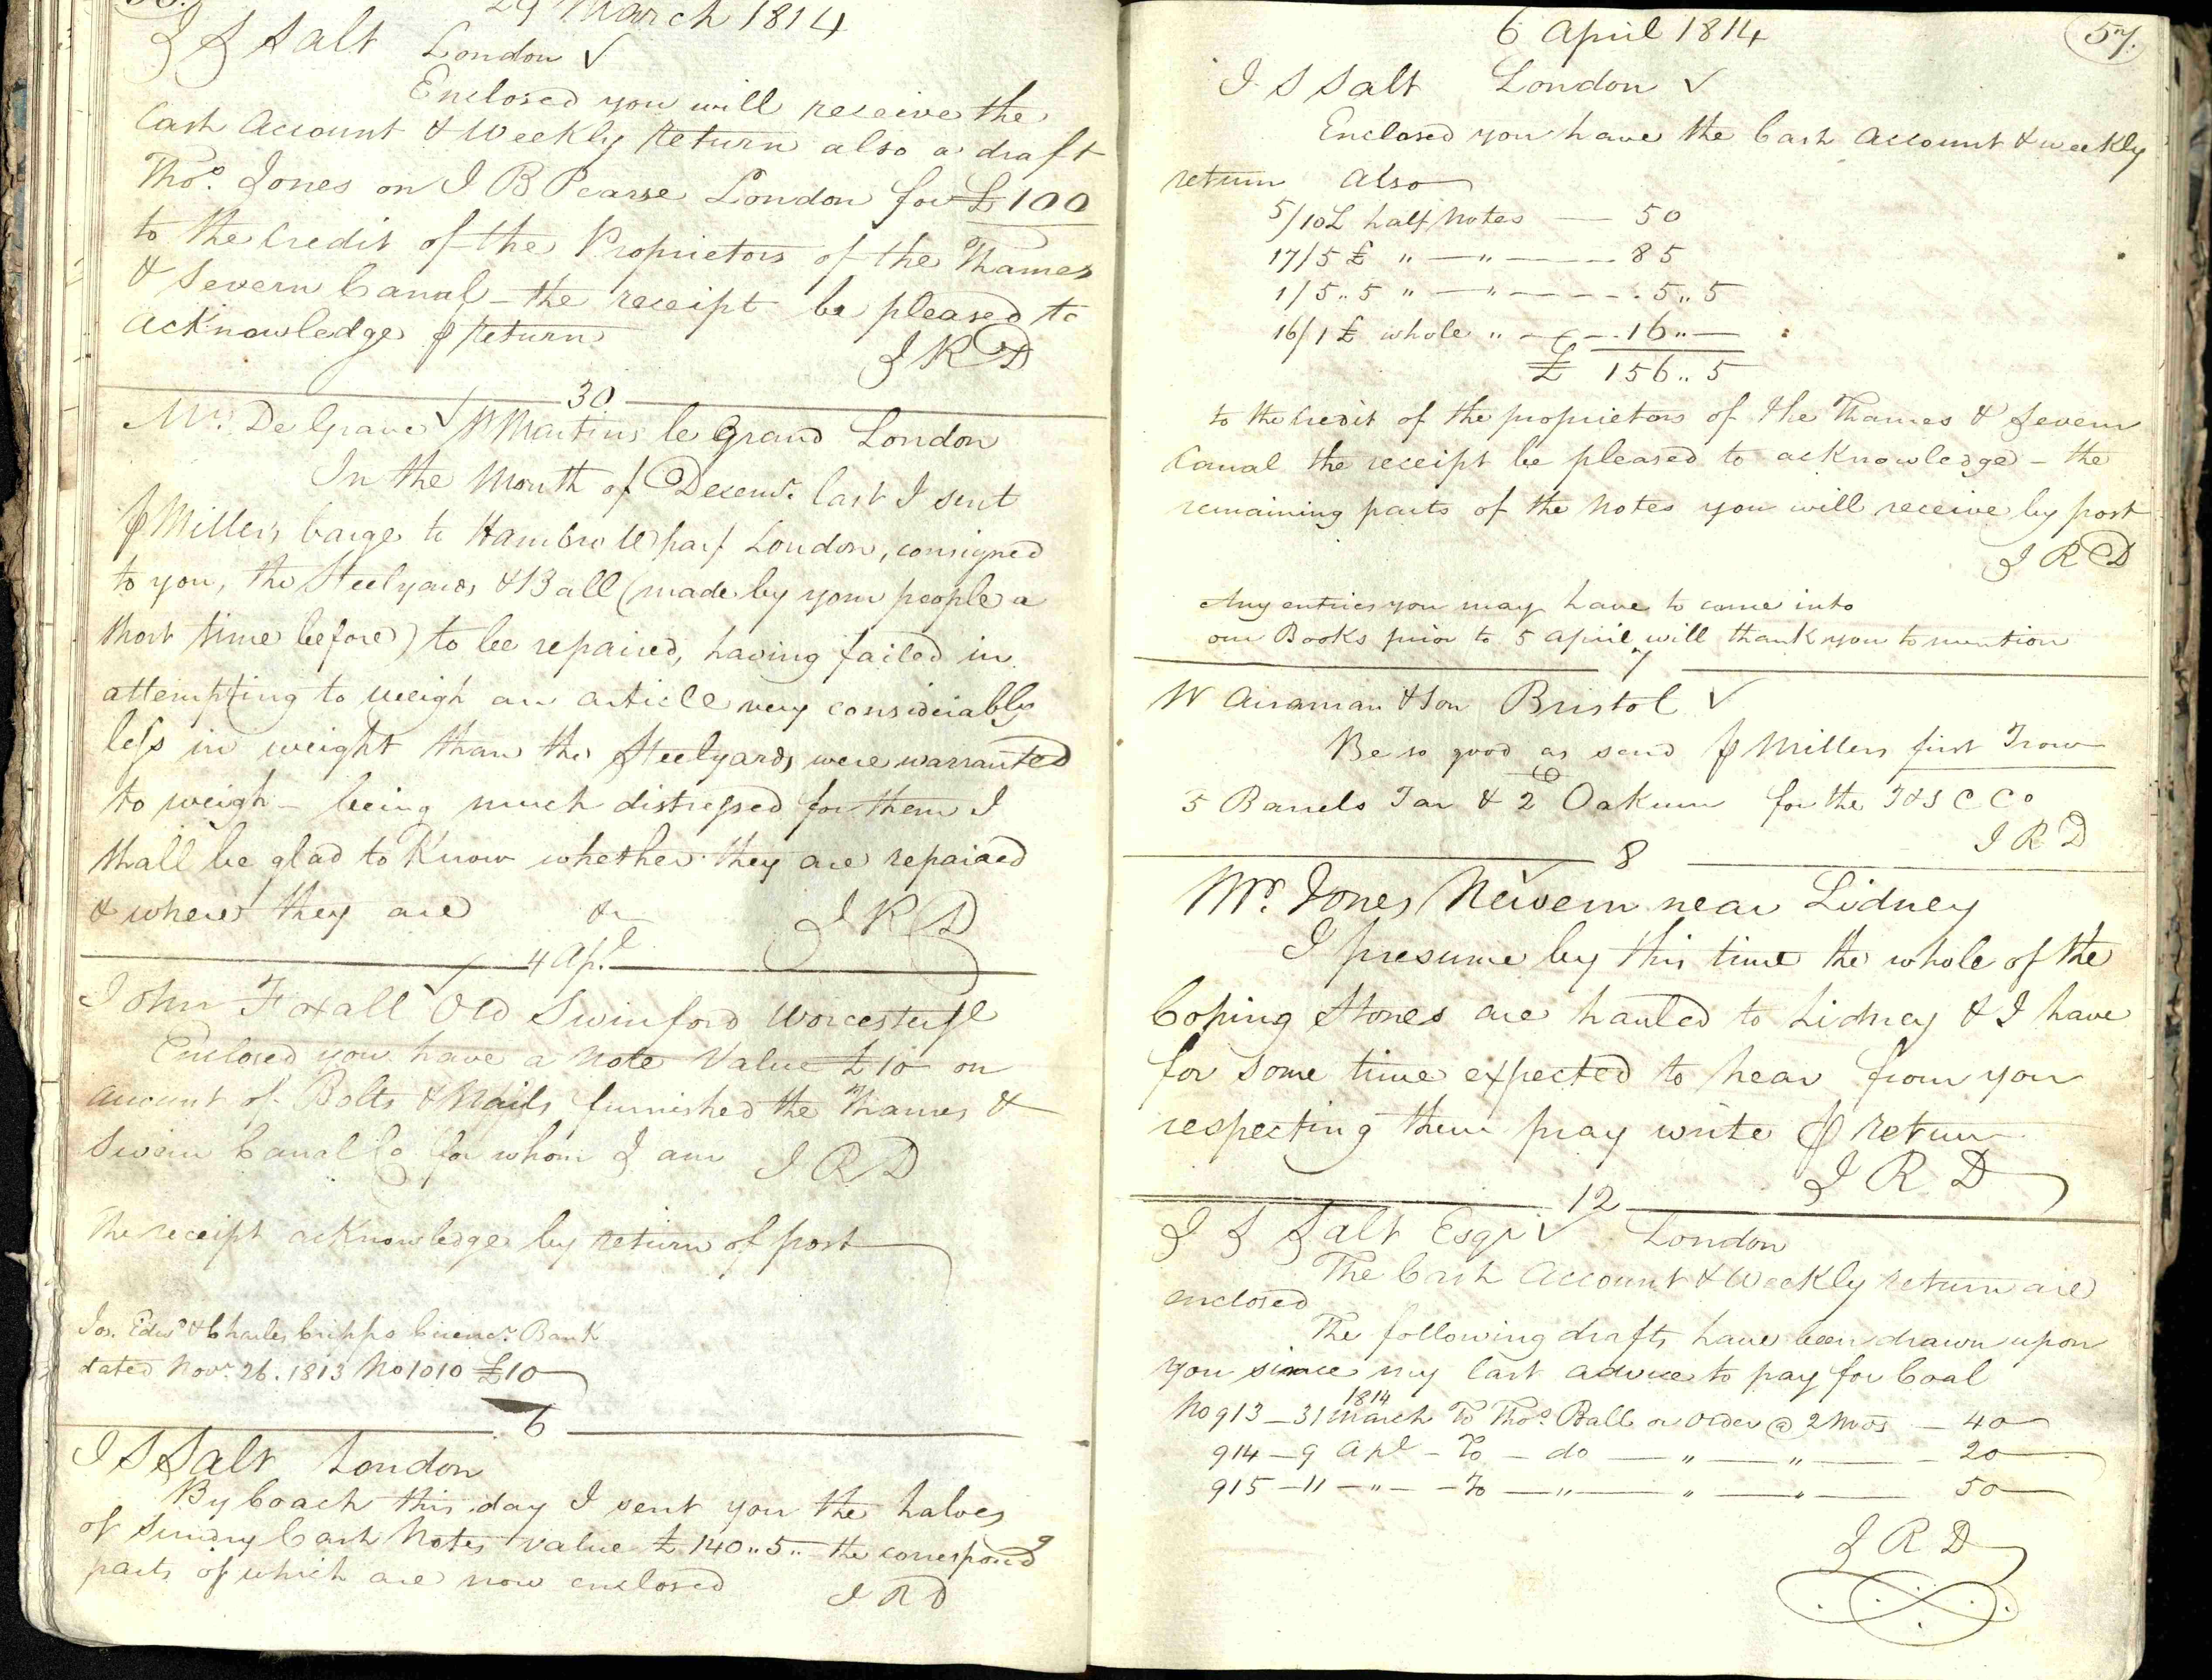 29 March 1814
J S Salt London ✓
Enclosed you will receive the
Cash Account & Weekly return also a draft
Thos. Jones on J B Pearse London for £100
to the Credit of the Proprietors of the Thames
& Severn Canal – the receipt be pleased to
acknowledge p return
J R D
30
Mr. De Grave ✓ St Martins le Grand London
In the Month of Decemr. last I sent
p Millers barge to Hambro Wharf London, consigned
to you, the Steelyards & Ball (made by your people a
short time before) to be repaired, having failed in
attempting to weigh an article very considerably
less in weight than the Steelyards were warranted
to weigh – being much distressed for them I
shall be glad to Know whether they are repaired
& where they are &c J R D
4 Apl.
John Foxall ✓ Old Swinford Worcester
Enclosed you have a Note Value £10 on
account of Bolts & Nails furnished the Thames &
Severn Canal Co for whom I am J R D
The receipt acknowledge by return of post
Jos. Edwd. & Charles Cripps Cirencr. Bank
dated Novr. 26. 1813 No 1010 £10
6
J S Salt London
By Coach this day I sent you the halves
of Sundry Cash Notes value £140..5.. the correspondg
parts of which are now enclosed J R D
6 April 1814
57.
J. S Salt London ✓
Enclosed you have the Cash Account & weekly
return also
5/10£ half Notes — 50
17/5£ " — " — 85
1/5..5 " — " — 5..5
16/1£ whole " — 16..—
£ 156..5
to the Credit of the proprietors of the Thames & Severn
Canal the receipt be pleased to acknowledge – the
remaining parts of the Notes you will receive by post
J R D
Any entries you may have to come into
our Books prior to 5 April will thank you to mention
7
W Airaman & Son Bristol ✓
Be so good as send p Millers first Trow
5 Barrels Tar & 2 C Oakum for the T & S C Co
J R D
8
Mr. Jones ✓ Newern near Lidney
I presume by this time the whole of the
Coping Stones are hauled to Lidney & I have
for some time expected to hear from you
respecting them pray write p return
J R D
12
J S Salt Esqr ✓ London
The Cash Account & Weekly return are
enclosed
The following drafts have been drawn upon
you since my last advice to pay for Coal
No 913 – 31 March 1814 To Thos. Ball or Order @ 2 Mos — 40
914 – 9 Apl – To – do — " — " — 20
915 – 11 – " – To — " — " — " — 50
J R D